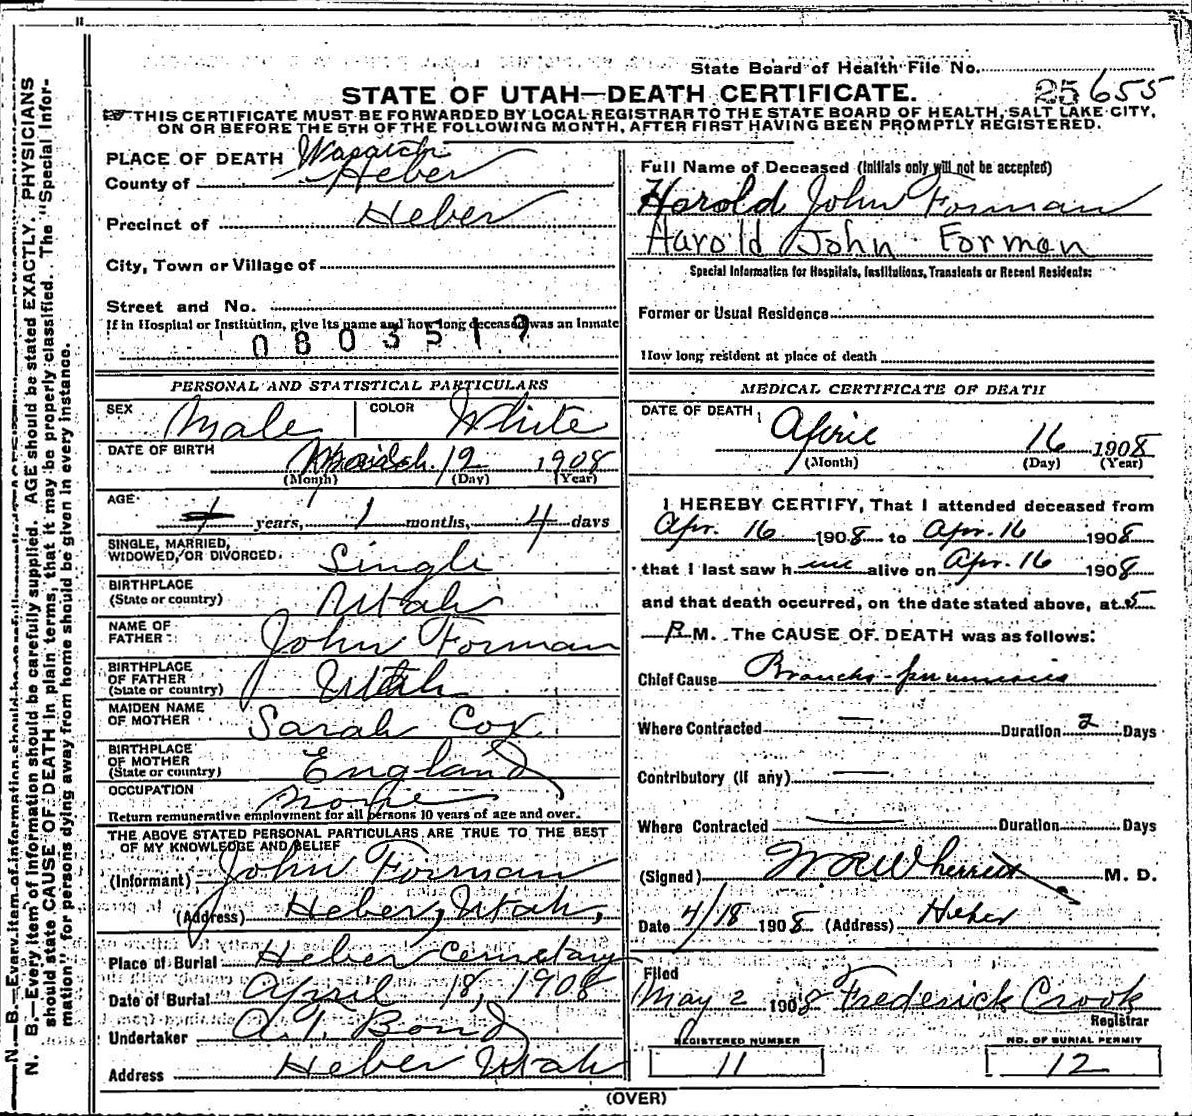 State Board of Health File No. 25655
STATE OF UTAH—DEATH CERTIFICATE.
THIS CERTIFICATE MUST BE FORWARDED BY LOCAL REGISTRAR TO THE STATE BOARD OF HEALTH, SALT LAKE CITY,
ON OR BEFORE THE 5TH OF THE FOLLOWING MONTH, AFTER FIRST HAVING BEEN PROMPTLY REGISTERED.
N. B.—Every item of information should be carefully supplied. AGE should be stated EXACTLY. PHYSICIANS
should state CAUSE OF DEATH in plain terms, that it may be properly classified. The "Special Infor-
mation" for persons dying away from home should be given in every instance.
PLACE OF DEATH Wasatch
County of Heber
Precinct of Heber
City, Town or Village of
Street and No.
If in Hospital or Institution, give its name and how long deceased was an Inmate
0803519
PERSONAL AND STATISTICAL PARTICULARS
SEX Male COLOR White
DATE OF BIRTH March 12 1908
(Month) (Day) (Year)
AGE
years, 1 months, 4 days
SINGLE, MARRIED,
WIDOWED, OR DIVORCED. Single
BIRTHPLACE
(State or country) Utah
NAME OF
FATHER: John Forman
BIRTHPLACE
OF FATHER
(State or country) Utah
MAIDEN NAME
OF MOTHER Sarah Cox
BIRTHPLACE
OF MOTHER
(State or country) England
OCCUPATION None
Return remunerative employment for all persons 10 years of age and over.
THE ABOVE STATED PERSONAL PARTICULARS ARE TRUE TO THE BEST
OF MY KNOWLEDGE AND BELIEF
(Informant) John Forman
(Address) Heber, Utah,
Place of Burial Heber Cemetary
Date of Burial April 18, 1908
Undertaker A. Y. Bond
Address Heber Utah
Full Name of Deceased (Initials only will not be accepted)
Harold John Forman
Harold John Forman
Special Information for Hospitals, Institutions, Transients or Recent Residents:
Former or Usual Residence
How long resident at place of death
MEDICAL CERTIFICATE OF DEATH
DATE OF DEATH April 16 1908
(Month) (Day) (Year)
I HEREBY CERTIFY, That I attended deceased from
Apr. 16 1908 to Apr. 16 1908
that I last saw him alive on Apr. 16 1908
and that death occurred, on the date stated above, at 5
P M. The CAUSE OF DEATH was as follows:
Chief Cause Broncho-pneumonia
Where Contracted — Duration 2 Days
Contributory (if any) —
Where Contracted — Duration Days
(Signed) W. R. Wherritt M. D.
Date 4/18 1908 (Address) Heber
Filed
May 2 1908 Frederick Crook
Registrar
REGISTERED NUMBER
11
NO. OF BURIAL PERMIT
12
(OVER)